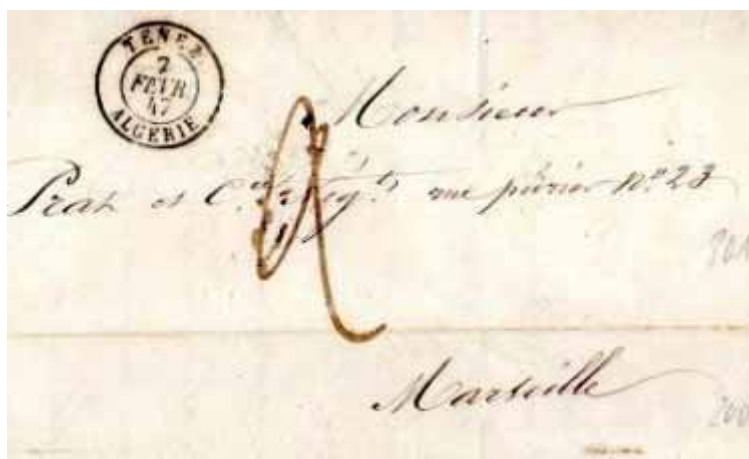 TENEZ
2
FEVR.
47
ALGERIE
Monsieur
Prat et C.ie Nég.ts rue n.o 23
Marseille